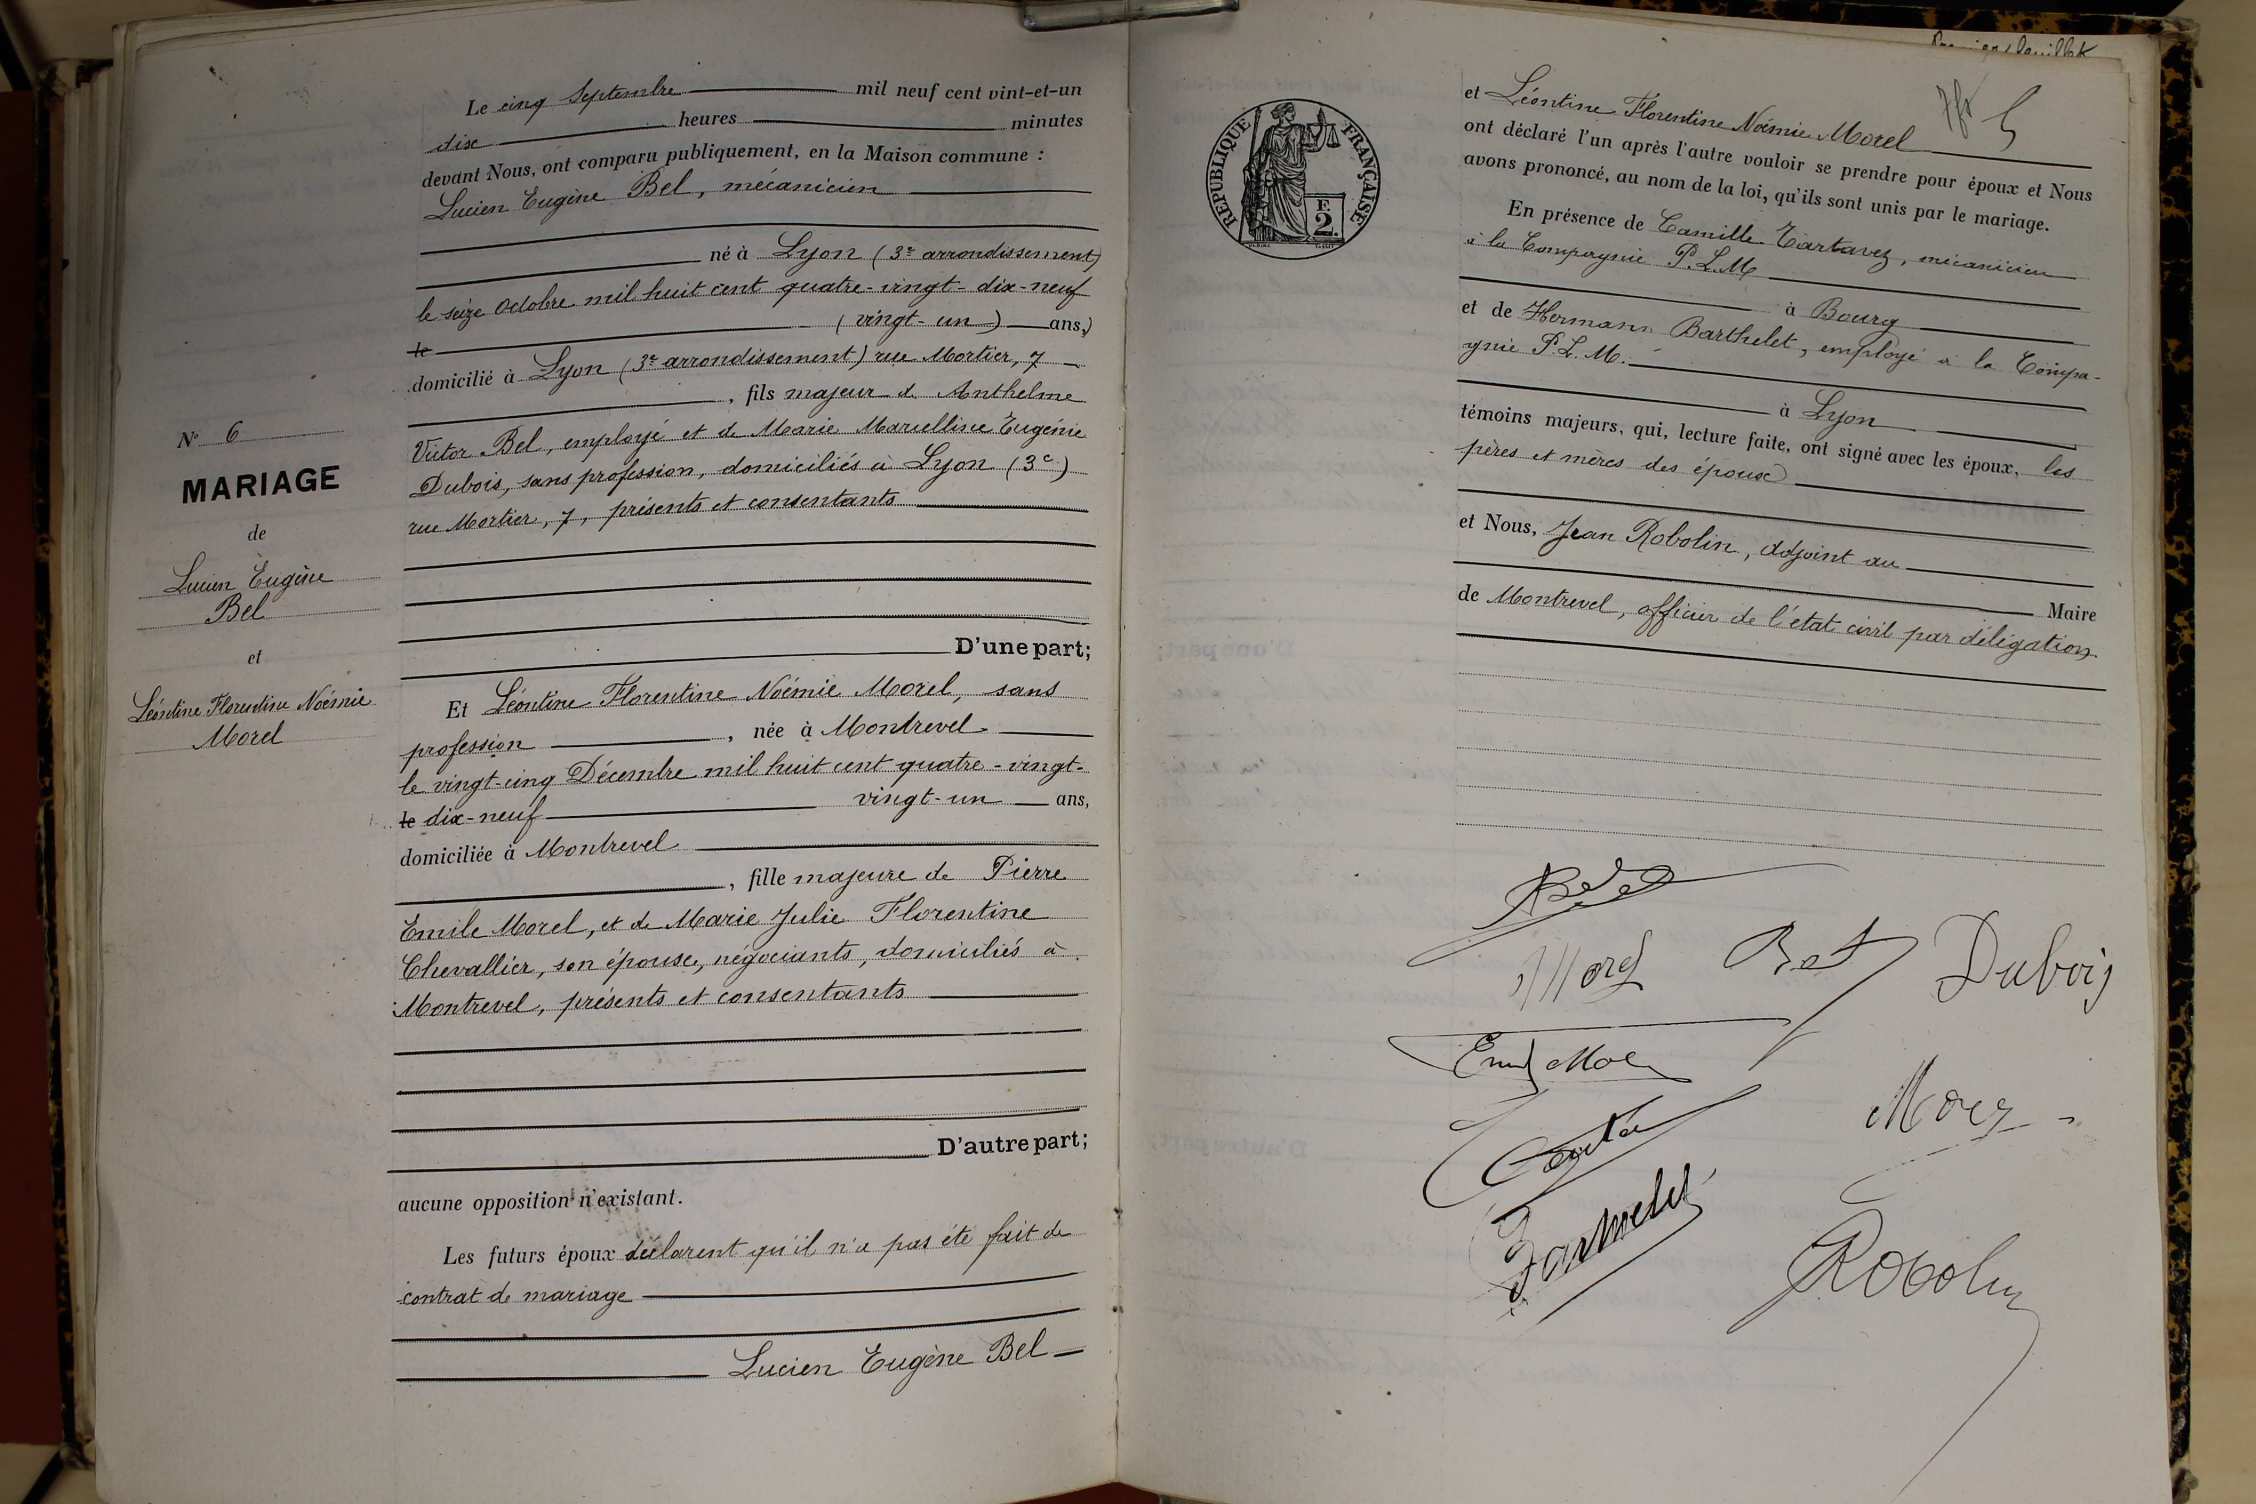 Le cinq Septembre mil neuf cent vint-et-un
dix heures minutes
devant Nous, ont comparu publiquement, en la Maison commune :
Lucien Eugène Bel, mécanicien
né à Lyon (3e arrondissement)
le seize Octobre mil huit cent quatre-vingt-dix-neuf
le (vingt-un) ans,
domicilié à Lyon (3e arrondissement) rue Mortier, 7
, fils majeur de Anthelme
Victor Bel, employé et de Marie Marcelline Eugénie
Dubois, sans profession, domiciliés à Lyon (3e)
rue Mortier, 7, présents et consentants
N° 6
MARIAGE
de
Lucien Eugène
Bel
et
Léontine Florentine Noémie
Morel
D'une part;
Et Léontine Florentine Noémie Morel, sans
profession , née à Montrevel
le vingt-cinq Décembre mil huit cent quatre-vingt-
le dix-neuf vingt-un ans,
domiciliée à Montrevel
, fille majeure de Pierre
Emile Morel, et de Marie Julie Florentine
Chevallier, son épouse, négociants, domiciliés à
Montrevel, présents et consentants
D'autre part;
aucune opposition n'existant.
Les futurs époux déclarent qu'il n'a pas été fait de
contrat de mariage
Lucien Eugène Bel
RÉPUBLIQUE FRANÇAISE
F.
2.
et Léontine Florentine Noémie Morel
ont déclaré l'un après l'autre vouloir se prendre pour époux et Nous
avons prononcé, au nom de la loi, qu'ils sont unis par le mariage.
En présence de Camille Tartavez, mécanicien
à la Compagnie P.L.M
à Bourg
et de Hermann Barthelet, employé à la Compa-
gnie P.L.M.
à Lyon
témoins majeurs, qui, lecture faite, ont signé avec les époux, les
pères et mères des épouse
et Nous, Jean Robolin, Adjoint au
Maire
de Montrevel, officier de l'état civil par délégation.
Bel
Morel Bel Dubois
Emile Morel
Morel
Robolin